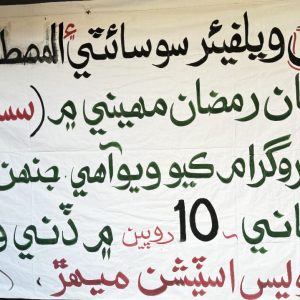 ويلفيئر سوسائٽي ۽ المصط
ان رمضان مهيني ۾ (سس
روگرام ڪيو ويو آهي جنهن
اني 10 روپين ۾ ڏني و
ليس اسٽيشن ميهڙ